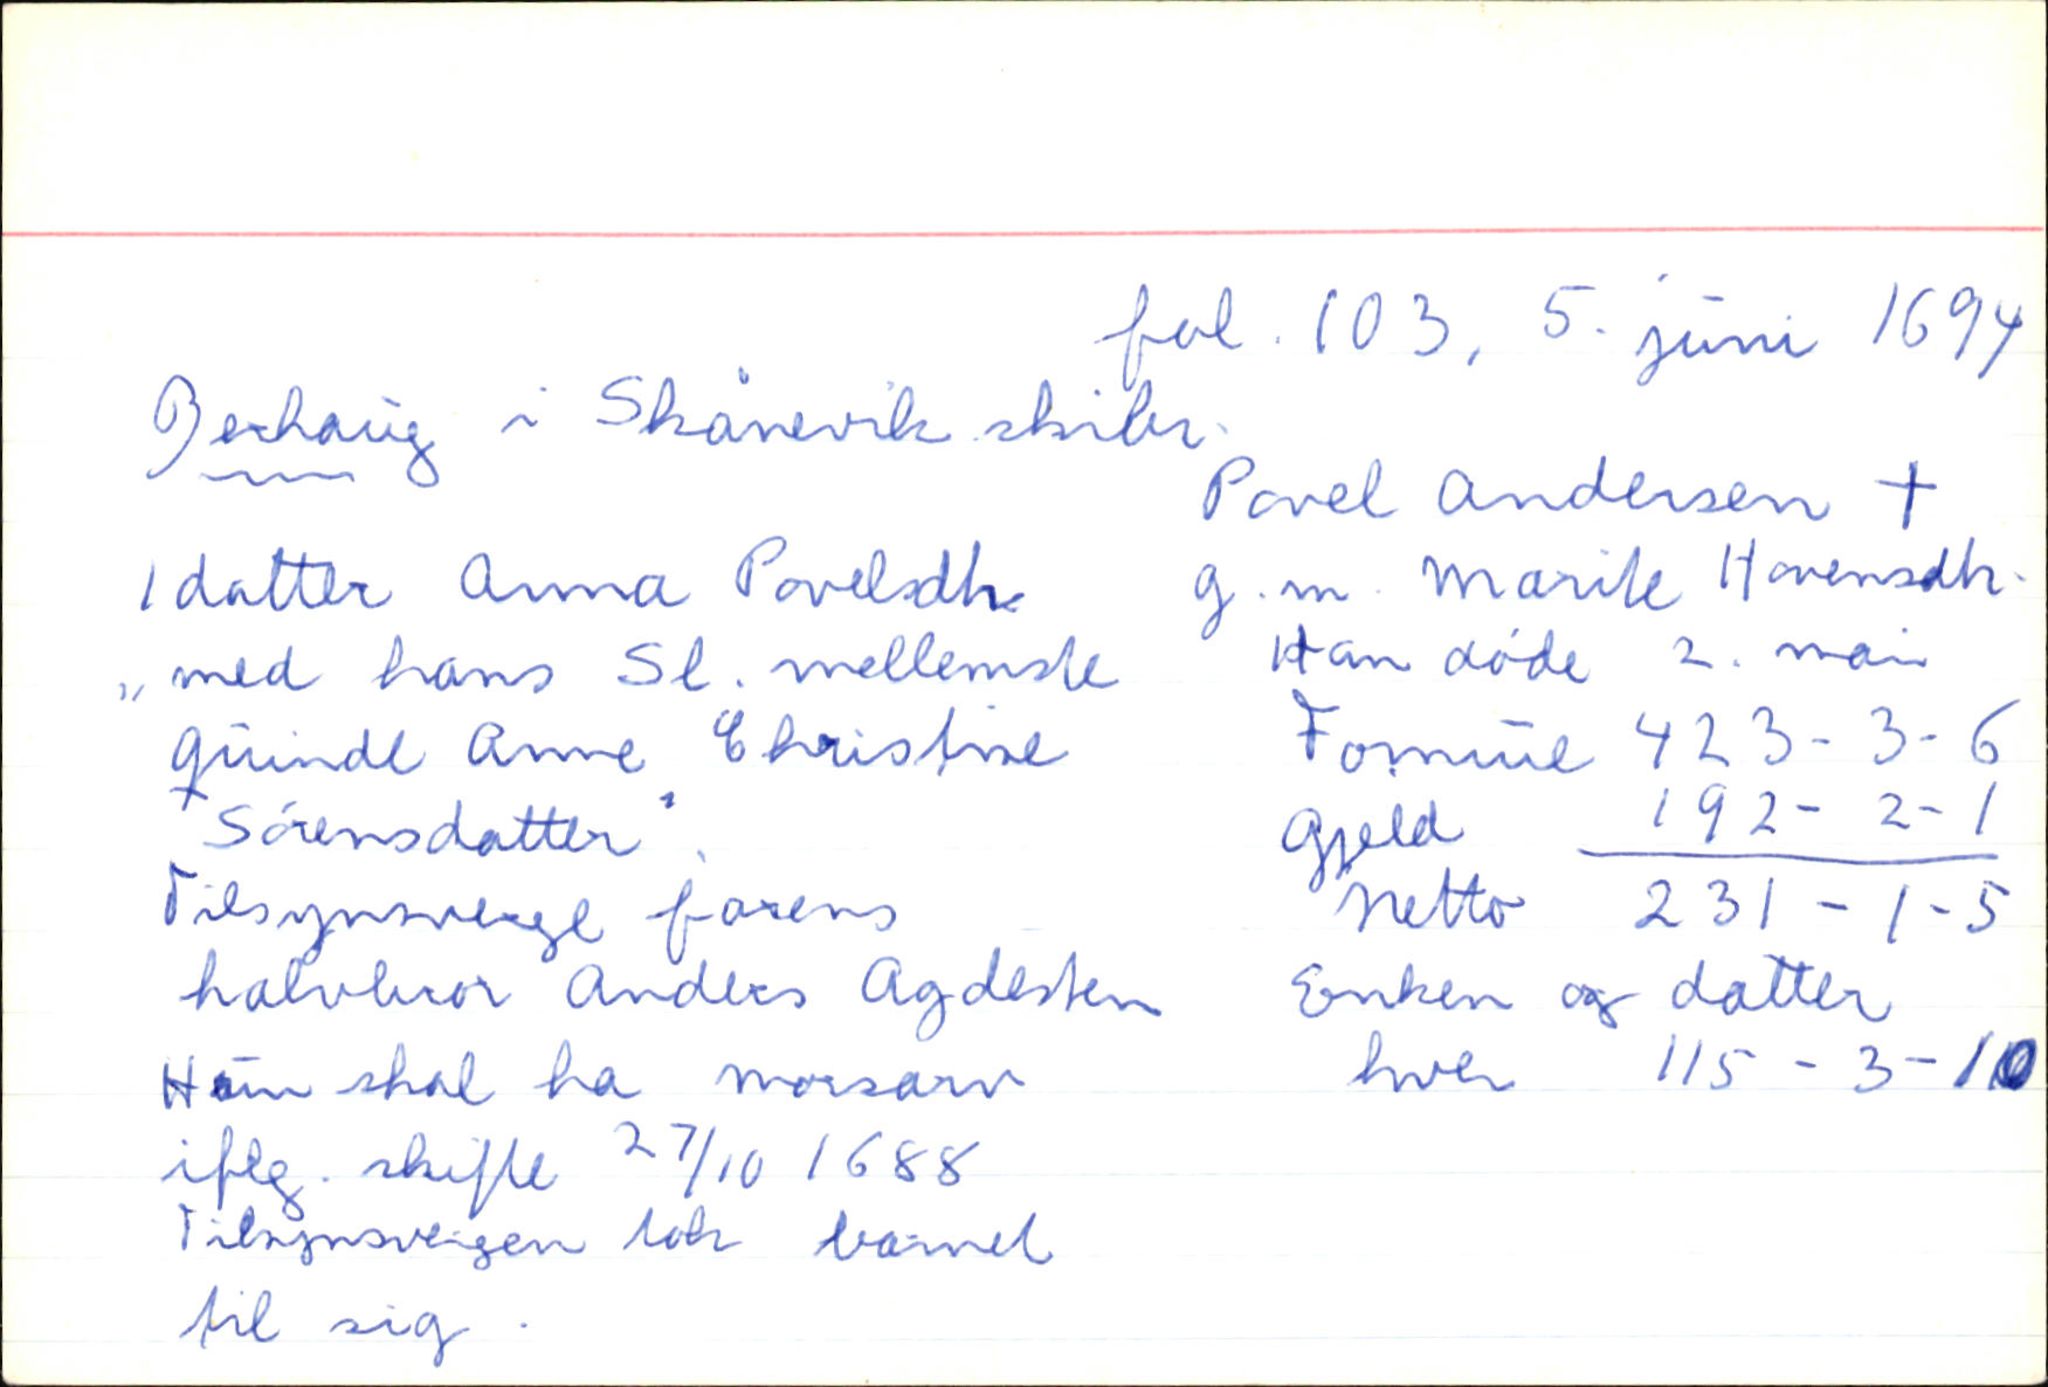 fol. 103, 5. juni 1694
Jerhaug i Skånevik skibr.
Povel Andersen †
g. m. Marite Havensdtr.
Han døde 2. mai
Formue 423-3-6
Gjeld 192-2-1
Netto 231-1-5
Enken og datter
hver 115-3-10
1 datter Anna Povelsdtr
„med hans Sl. mellemste
quinde Anne Christine
Sörensdatter".
Tilsynsverge farens
halvbror Anders Agdesten
Hun skal ha morsarv
iflg. skifte 27/10 1688
Tilsynsvergen tok barnet
til sig.